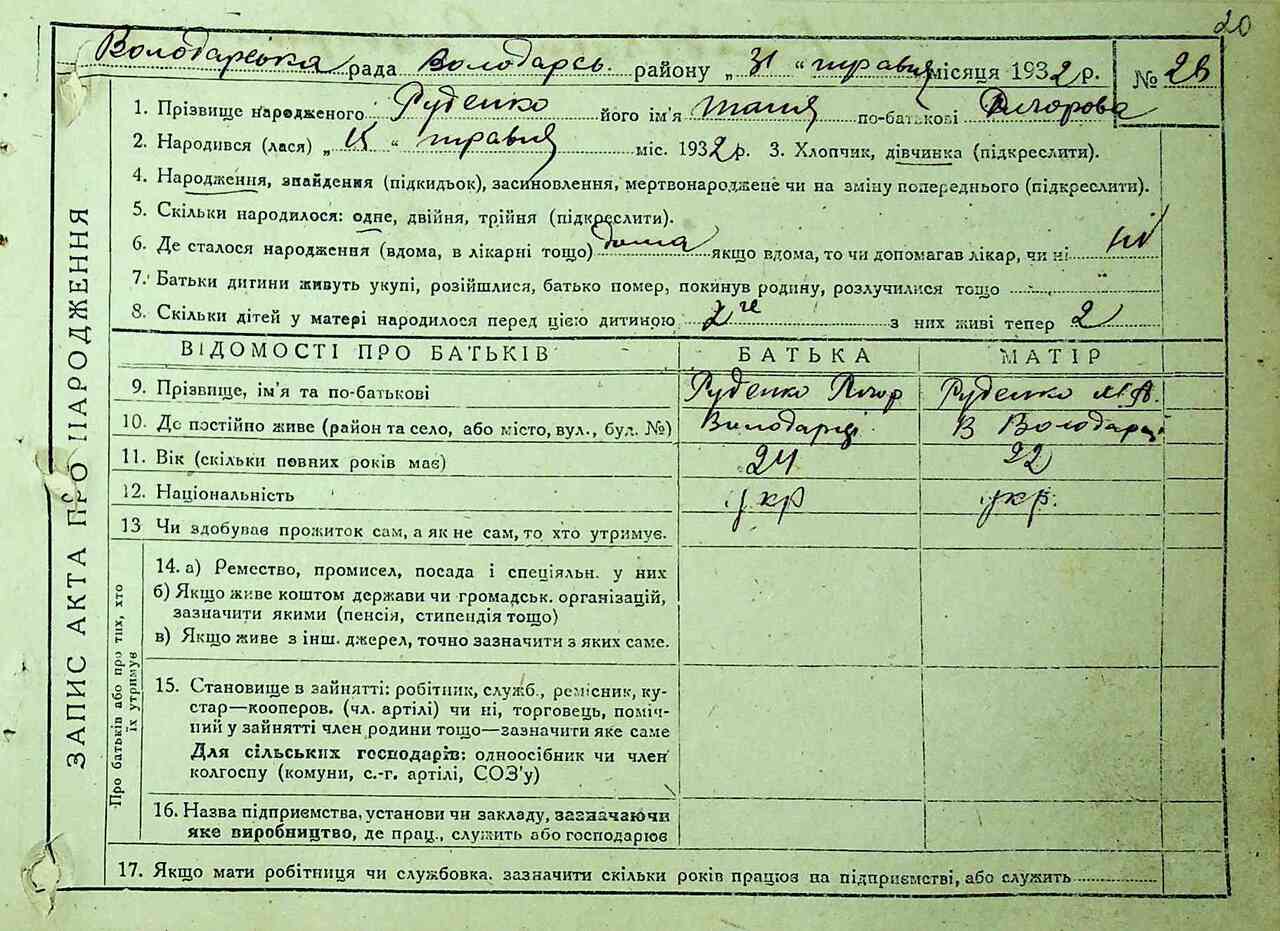 20
Володарська рада Володарсь. району „ 31 “ травня місяця 1932 р. № 28
1. Прізвище народженого Руденко його ім'я Таня по-батькові
2. Народився (лася) „ “ травня міс. 1932 р. 3. Хлопчик, дівчинка (підкреслити).
4. Народження, знайдення (підкидьок), засиновлення, мертвонароджене чи на зміну попереднього (підкреслити).
5. Скільки народилося: одне, двійня, трійня (підкреслити).
6. Де сталося народження (вдома, в лікарні тощо) дома якщо вдома, то чи допомагав лікар, чи ні ні
7. Батьки дитини живуть укупі, розійшлися, батько помер, покинув родину, розлучилися тощо
8. Скільки дітей у матері народилося перед цією дитиною 2 ге з них живі тепер 2
ВІДОМОСТІ ПРО БАТЬКІВ БАТЬКА МАТІР
9. Прізвище, ім'я та по-батькові Руденко Руденко М. А.
10. Де постійно живе (район та село, або місто, вул., буд. №) Володарці В Володарці
11. Вік (скільки повних років має) 24 22
12. Національність укр укр.
13 Чи здобуває прожиток сам, а як не сам, то хто утримує.
14. а) Ремество, промисел, посада і спеціяльн. у них
б) Якщо живе коштом держави чи громадськ. організацій,
зазначити якими (пенсія, стипендія тощо)
в) Якщо живе з інш. джерел, точно зазначити з яких саме.
15. Становище в зайнятті: робітник, служб., ремісник, ку-
стар—кооперов. (чл. артілі) чи ні, торговець, поміч-
ний у зайнятті член родини тощо—зазначити яке саме
Для сільських господарів: одноосібник чи член
колгоспу (комуни, с.-г. артілі, СОЗ'у)
16. Назва підприємства, установи чи закладу, зазначаючи
яке виробництво, де прац., служить або господарює
17. Якщо мати робітниця чи службовка, зазначити скільки років працює на підприємстві, або служить
ЗАПИС АКТА ПРО НАРОДЖЕННЯ
Про батьків або про тих, хто
їх утримує